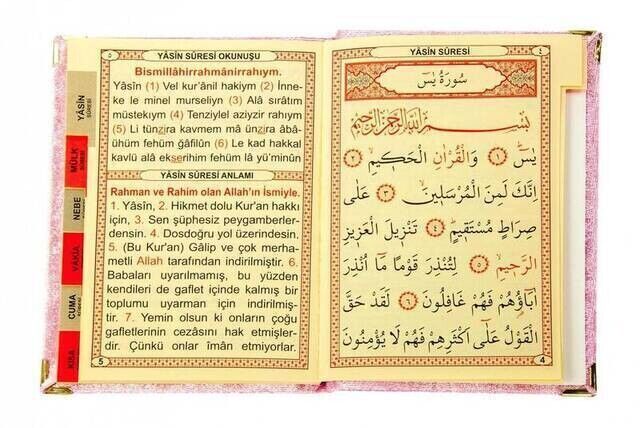 ٥
YÂSİN SÛRESİ OKUNUŞU
Bismillâhirrahmânirrahıym.
Yâsîn (1) Vel kur'ânil hakiym (2) İnne-
ke le minel murseliyn (3) Alâ sırâtım
müstekıym (4) Tenziylel aziyzir rahıym
(5) Li tünzira kavmem mâ ünzira âbâ-
ühüm fehüm ğâfilûn (6) Le kad hakkal
kavlü alâ ekserihim fehüm lâ yü'minûn
YÂSİN SÛRESİ ANLAMI
Rahman ve Rahim olan Allah'ın İsmiyle.
1. Yâsîn, 2. Hikmet dolu Kur'an hakkı
için, 3. Sen şüphesiz peygamberler-
densin. 4. Dosdoğru yol üzerindesin.
5. (Bu Kur'an) Gâlip ve çok merha-
metli Allah tarafından indirilmiştir. 6.
Babaları uyarılmamış, bu yüzden
kendileri de gaflet içinde kalmış bir
toplumu uyarman için indirilmiş-
tir. 7. Yemin olsun ki onların çoğu
gafletlerinin cezasını hak etmişler-
dir. Çünkü onlar îman etmiyorlar.
5
YÂSİN
SÛRESİ
MÜLK
SÛRESİ
NEBE
VAKIA
CUMA
KISA
YÂSİN SÛRESİ
٤
سُورَةُ يٰسٓ
بِسْمِ اللّٰهِ الرَّحْمٰنِ الرَّحِيمِ
يٰسٓ ﴿١﴾ وَالْقُرْاٰنِ الْحَكِيمِ ﴿٢﴾
اِنَّكَ لَمِنَ الْمُرْسَلِينَ ﴿٣﴾ عَلٰى
صِرَاطٍ مُسْتَقِيمٍ ﴿٤﴾ تَنْزِيلَ الْعَزِيزِ
الرَّحِيمِ ﴿٥﴾ لِتُنْذِرَ قَوْمًا مَٓا اُنْذِرَ
اٰبَٓاؤُهُمْ فَهُمْ غَافِلُونَ ﴿٦﴾ لَقَدْ حَقَّ
الْقَوْلُ عَلٰٓى اَكْثَرِهِمْ فَهُمْ لَا يُؤْمِنُونَ
4